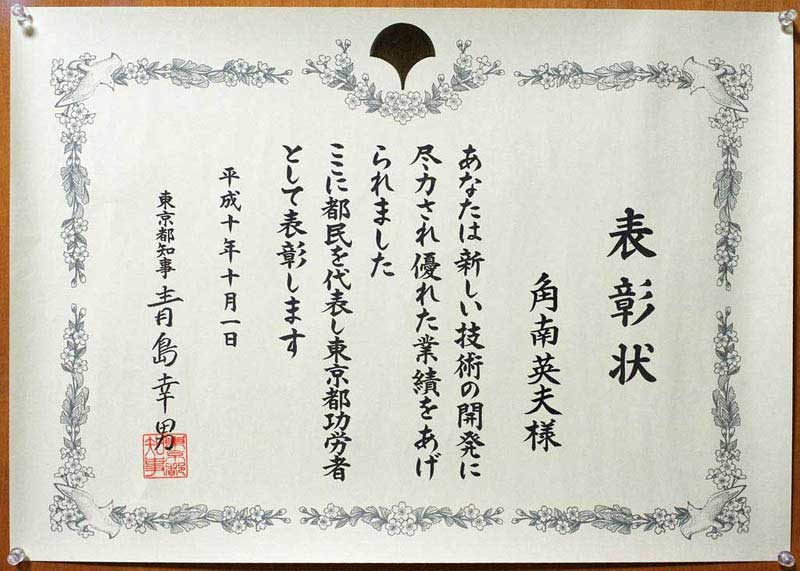 表彰状
角南英夫様
あなたは新しい技術の開発に
尽力され優れた業績をあげ
られました
ここに都民を代表し東京都功労者
として表彰します
平成十年十月一日
東京都知事 青島幸男
東京都
知事